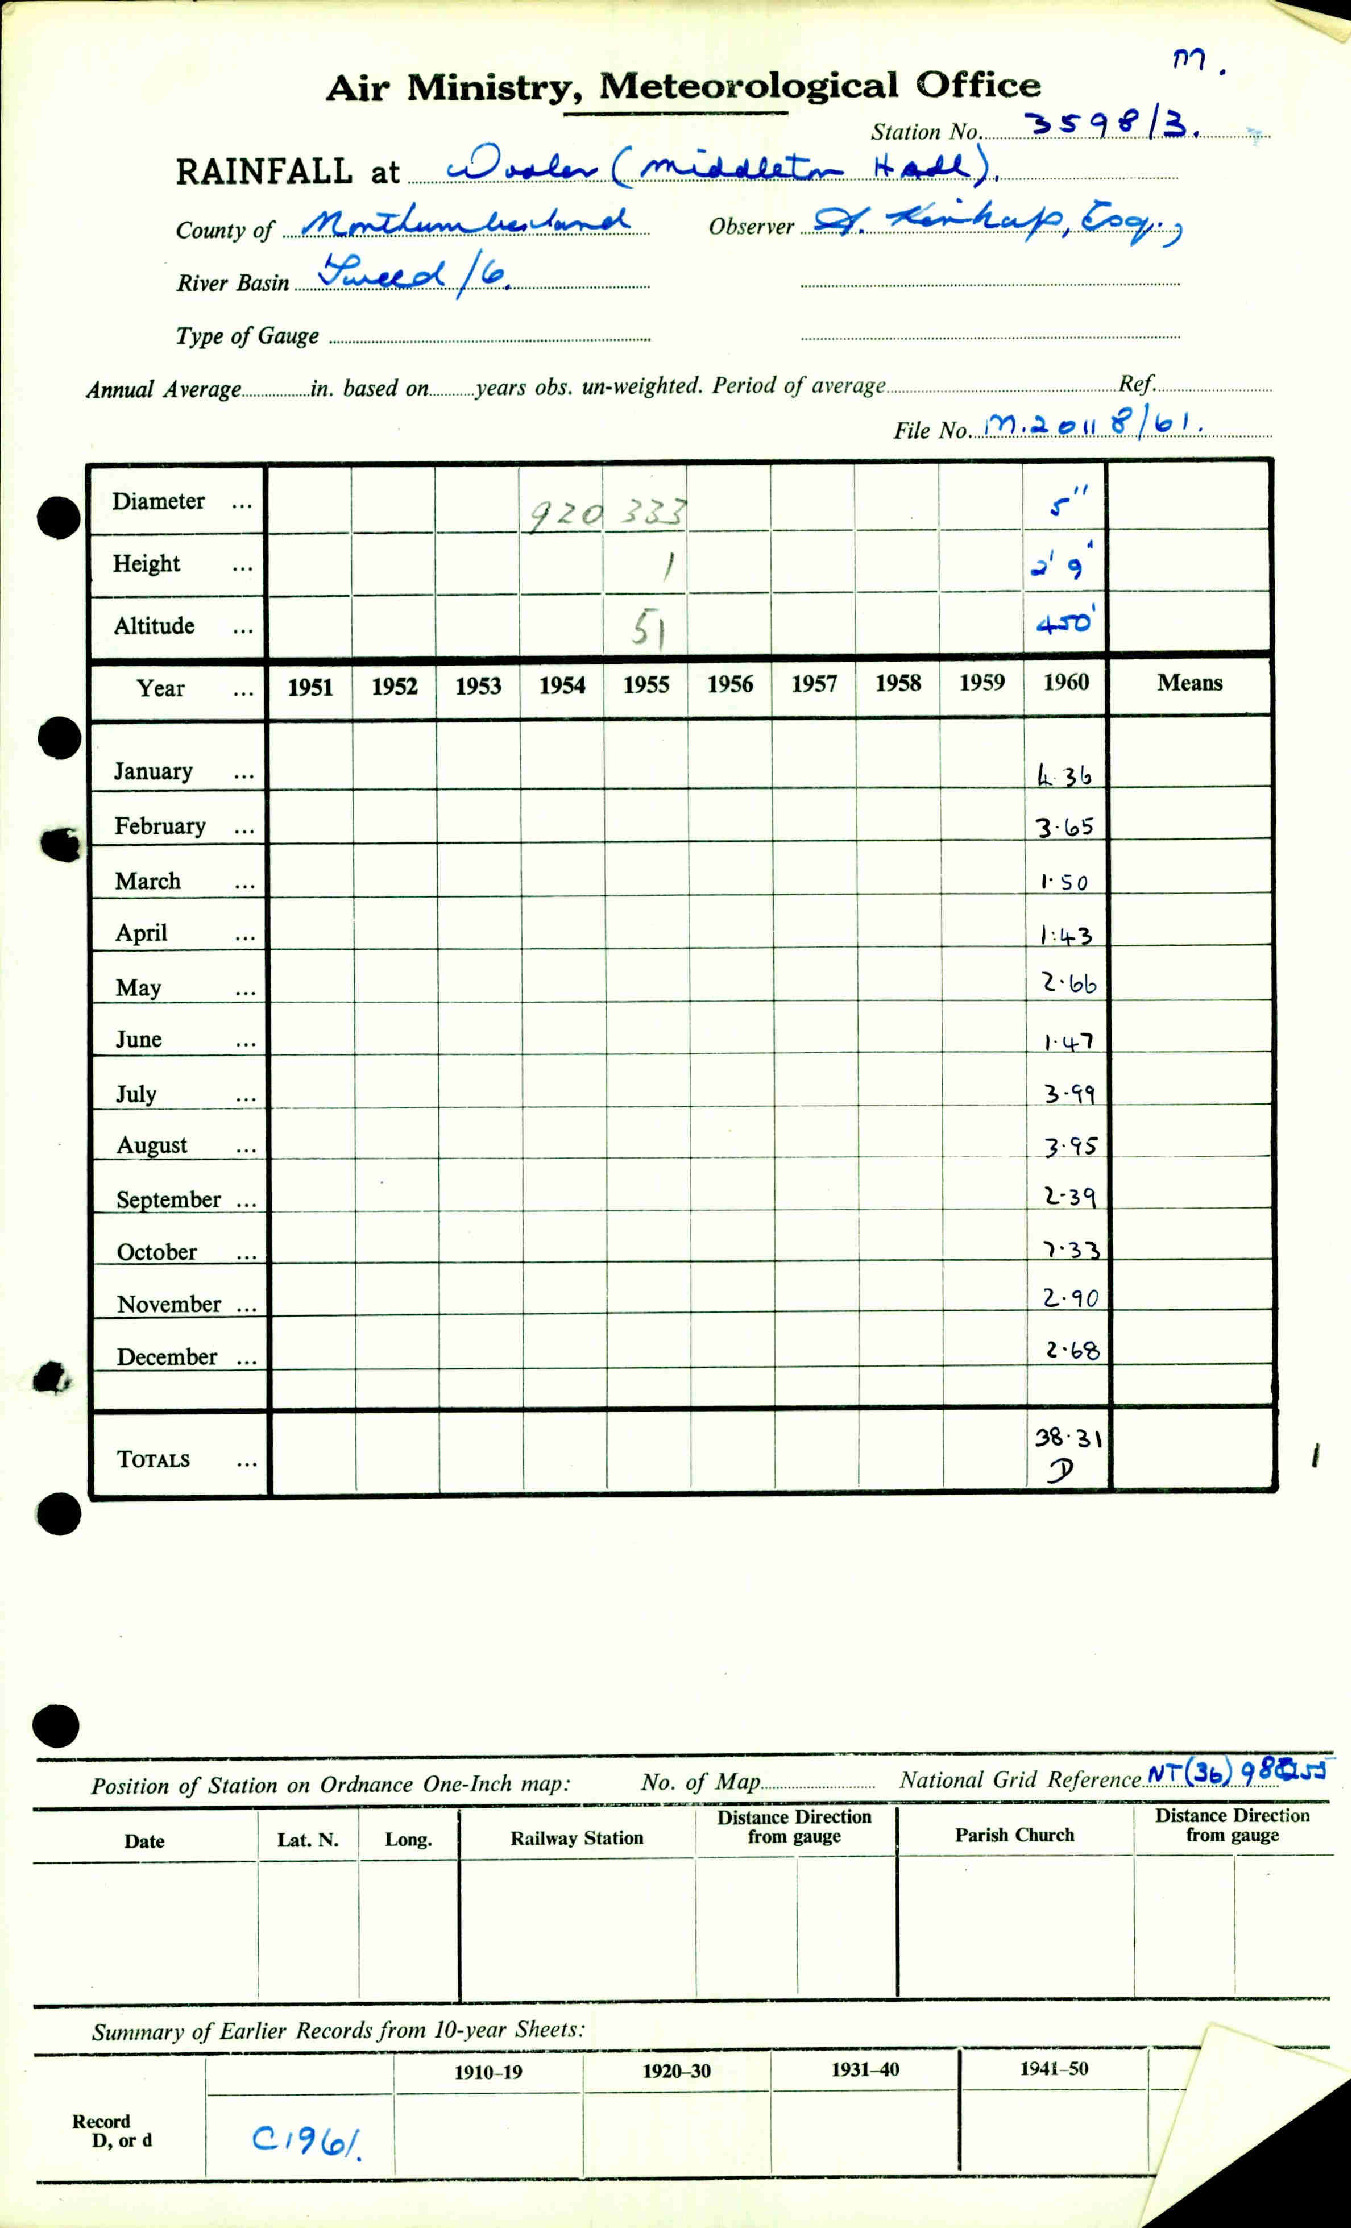 m.
Air Ministry, Meteorological Office
Station No. 3598/3.
RAINFALL at Wooler (Middleton Hall).
County of Northumberland Observer A. Esq.,
River Basin Tweed /6.
Type of Gauge
Annual Average in. based on years obs. un-weighted. Period of average Ref.
File No. M.20118/61.
Diameter ... 920 333 5"
Height ... 1 2' 9"
Altitude ... 51 450'
Year ... 1951 1952 1953 1954 1955 1956 1957 1958 1959 1960 Means
January ... 4.36
February ... 3.65
March ... 1.50
April ... 1.43
May ... 2.66
June ... 1.47
July ... 3.99
August ... 3.95
September ... 2.39
October ... 7.33
November ... 2.90
December ... 2.68
TOTALS ... 38.31
D
1
Position of Station on Ordnance One-Inch map: No. of Map National Grid Reference NT(36)
Date Lat. N. Long. Railway Station Distance Direction from gauge Parish Church Distance Direction from gauge
Summary of Earlier Records from 10-year Sheets:
1910–19 1920–30 1931–40 1941–50
Record
D, or d C1961.